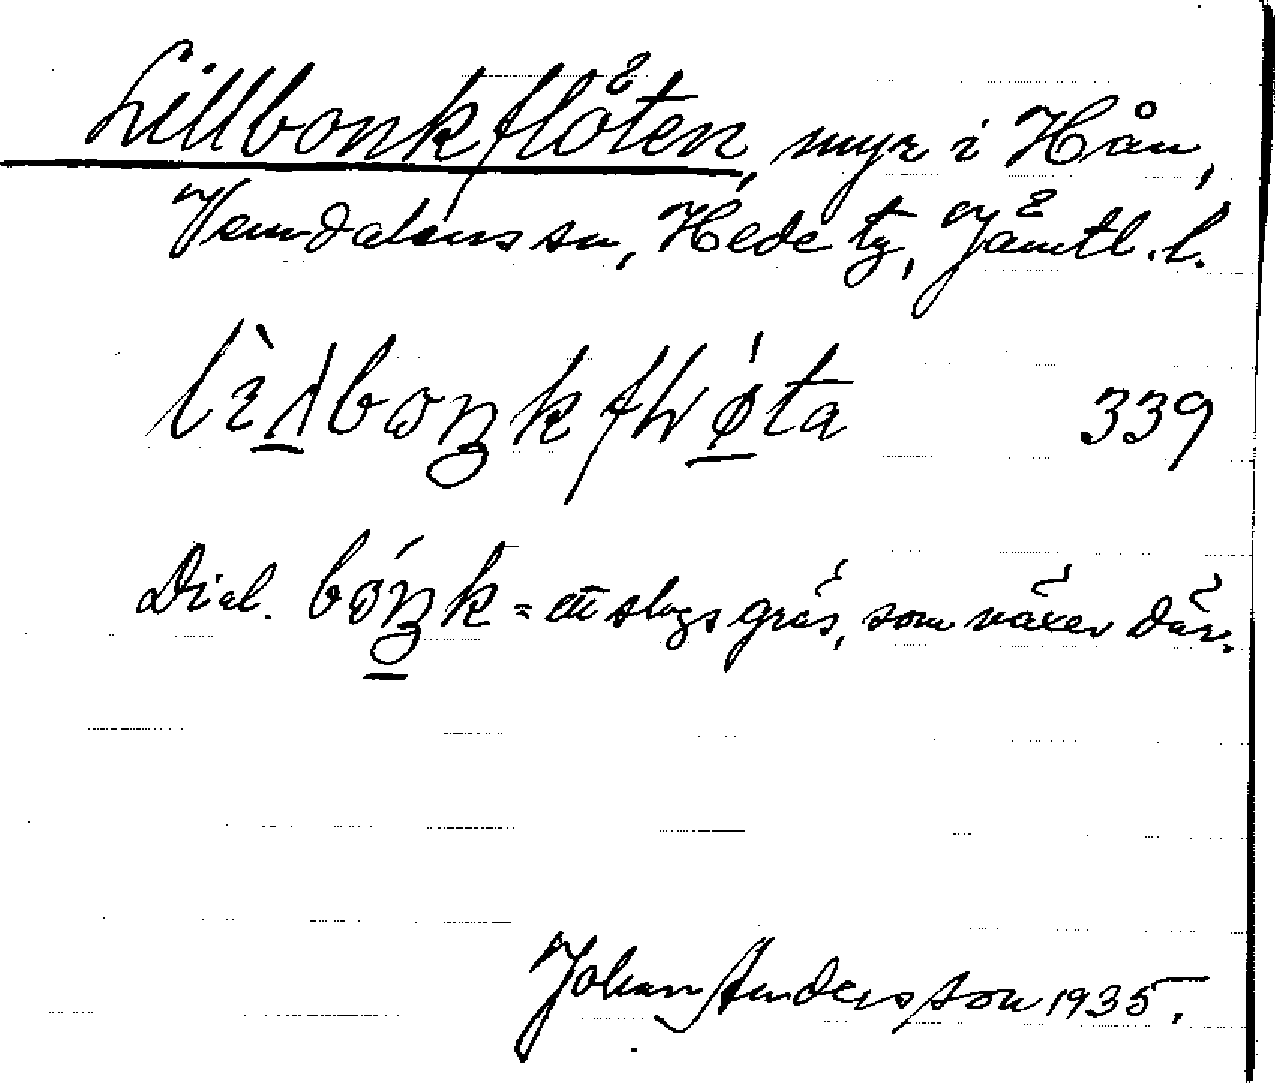 Lillbonkflåten, myr i Hån,
Vemdalens sn, Hede tg, Jämtl. l.
339
Dial. = ett slags gräs, som växer där.
Johan Andersson 1935.